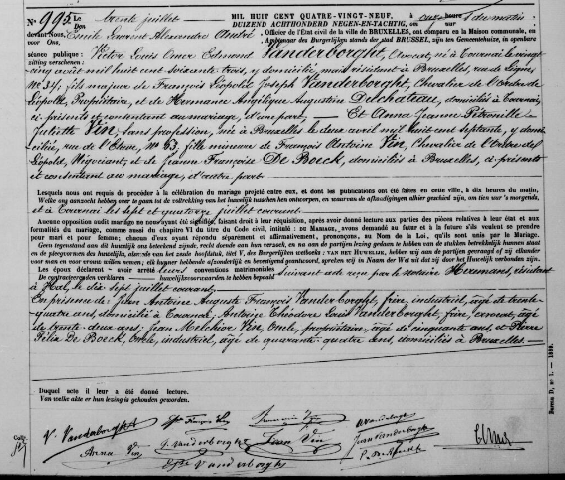 N° 995. Le trente juillet MIL HUIT CENT QUATRE-VINGT-NEUF, à onze heures du matin
DUIZEND ACHTHONDERD NEGEN-EN-TACHTIG,
devant Nous, Emile Laurent Alexandre André Officier de l'État civil de la ville de BRUXELLES, ont comparu en la Maison communale, en
voor Ons, Ambtenaar van het Burgerlijken stands der stad BRUSSEL, zijn ten Gemeentehuize, in openbare
séance publique: Victor Louis Omer Edmond Vanderborght, Avocat, né à Tournai le vingt
zitting verschenen:
cinq avril mil huit cent soixante trois, y domicilié, mais résidant à Bruxelles, rue de Ligne
N° 34, fils majeur de François Léopold Joseph Vanderborght, Chevalier de l'Ordre de
Léopold, Propriétaire, et de Hermance Angélique Augustine Duchateau, domiciliés à Tournai,
ci présents et consentant au mariage, d'une part, — Et Anna Jeanne Pétronille
Juliette Vin, sans profession, née à Bruxelles le deux avril mil huit cent septante, y domi-
ciliée, rue de N° 53, fille mineure de François Antoine Vin, Chevalier de l'Ordre de
Léopold, Négociant, et de Jeanne Françoise De Boeck, domiciliés à Bruxelles, ci présents
et consentant au mariage, d'autre part.
Lesquels nous ont requis de procéder à la célébration du mariage projeté entre eux, et dont les publications ont été faites en cette ville, à dix heures du matin,
Welke ons aanzocht hebben over te gaan tot de voltrekking van het huwelijk tusschen hen ontworpen, en waarvan de afkondigingen alhier geschied zijn, om tien uur 's morgends,
et à Tournai les sept et quatorze juillet courant.
Aucune opposition audit mariage ne nous ayant été signifiée, faisant droit à leur réquisition, après avoir donné lecture aux parties des pièces relatives à leur état et aux
formalités du mariage, comme aussi du chapitre VI du titre du Code civil, intitulé : DU MARIAGE, avons demandé au futur et à la future s'ils veulent se prendre
pour mari et pour femme; chacun d'eux ayant répondu séparément et affirmativement, prononçons, au Nom de la Loi, qu'ils sont unis par le Mariage.
Les époux déclarent avoir arrêté leurs conventions matrimoniales suivant acte reçu par le notaire Hermans, résidant
De contractceerenden verklaren huwelijksvoorwaarden te hebben bepaald
à Hal, le dix sept juillet courant.
En présence de Jean Antoine Auguste François Vanderborght, frère, industriel, âgé de trente-
quatre ans, domicilié à Tournai, Antoine Théodore Louis Vanderborght, frère, avocat, âgé
de trente-deux ans; Jean Melchior Vin, Oncle, propriétaire, âgé de cinquante ans, et Pierre
Félix De Boeck, Oncle, industriel, âgé de quarante-quatre ans, domiciliés à Bruxelles.
Duquel acte il leur a été donné lecture.
Van welke akte er hun lezing is gehouden geworden.
V. Vanderborght
Anna Vin
Vanderborght
Jean Vin
Jean Vanderborgh
Vanderborght
Bureau D, n° 1. — 1889.